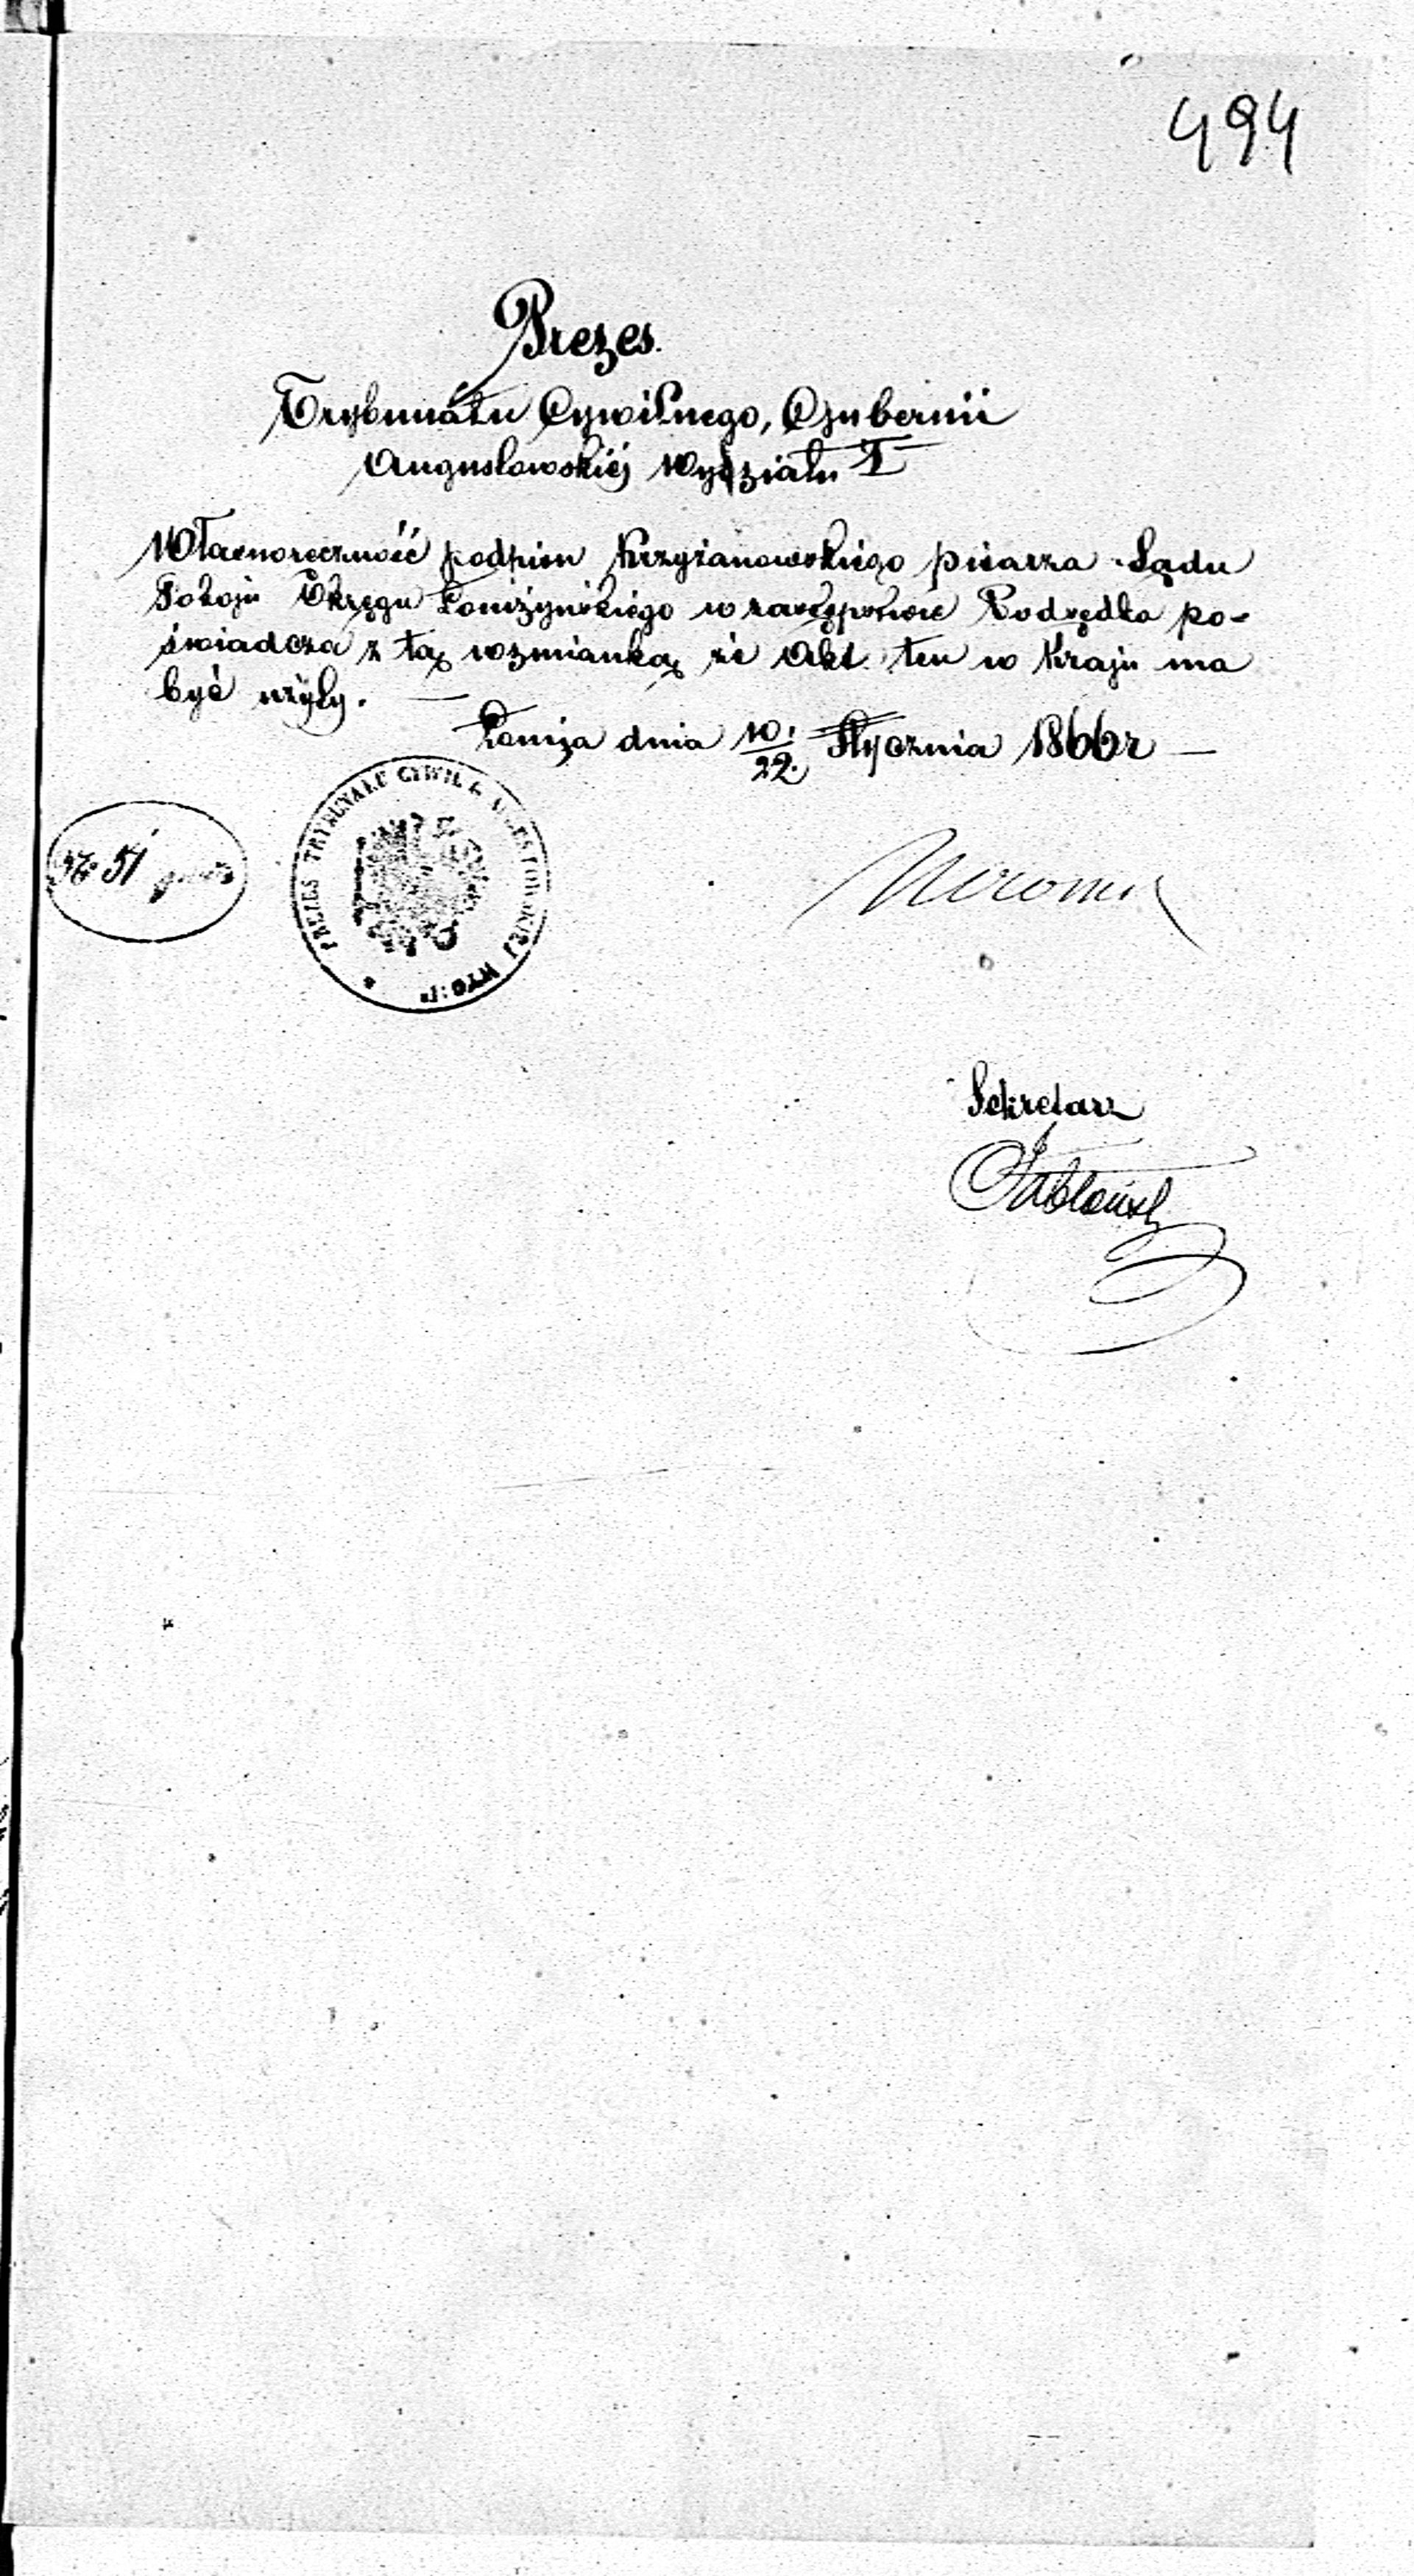 494
Prezes.
Trybunału Cywilnego, Gubernii
Augustowskiéj Wydziału I
Własnoręczność podpisu Krzyżanowskiego pisarza Sądu
Pokoju Okręgu Łomżyńskiego w zastępstwie Podsędka po-
świadcza z tą wzmianką że Akt ten w Kraju ma
być użyty. —
Łomża dnia 10./22. Stycznia 1866 r —
PREZES TRYBUNAŁU CYWIL G. AUGUSTOWSKIEJ WYD: I
№ 51
Sekretarz
Jabłoński